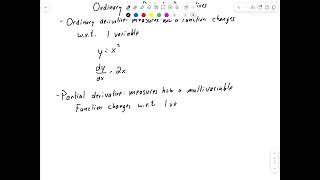 Ordinary
- Ordinary derivative: measures how a function changes
w.r.t. 1 variable
y = x²
dy/dx = 2x
- Partial derivative: measures how a multivariable
Function changes w.r.t. 1 va